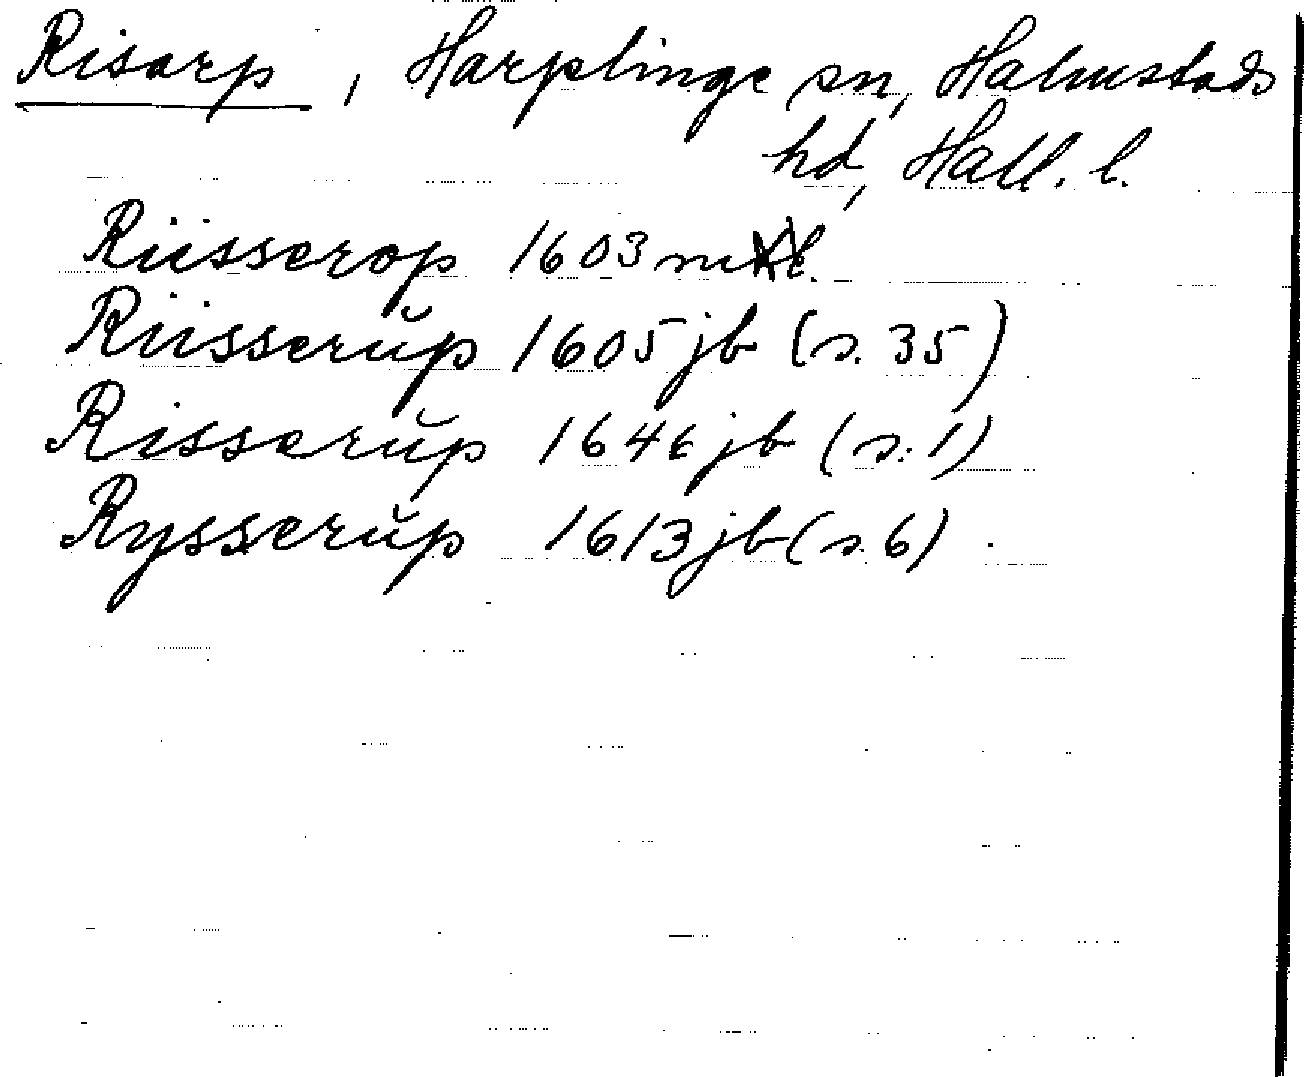 Risarp, Harplinge sn, Halmstads
hd, Hall. l.
Riisserop 1603 ml.
Riisserŭp 1605 jb (s. 35)
Risserŭp 1646 jb (s. 1)
Rysserŭp 1613 jb (s. 6)